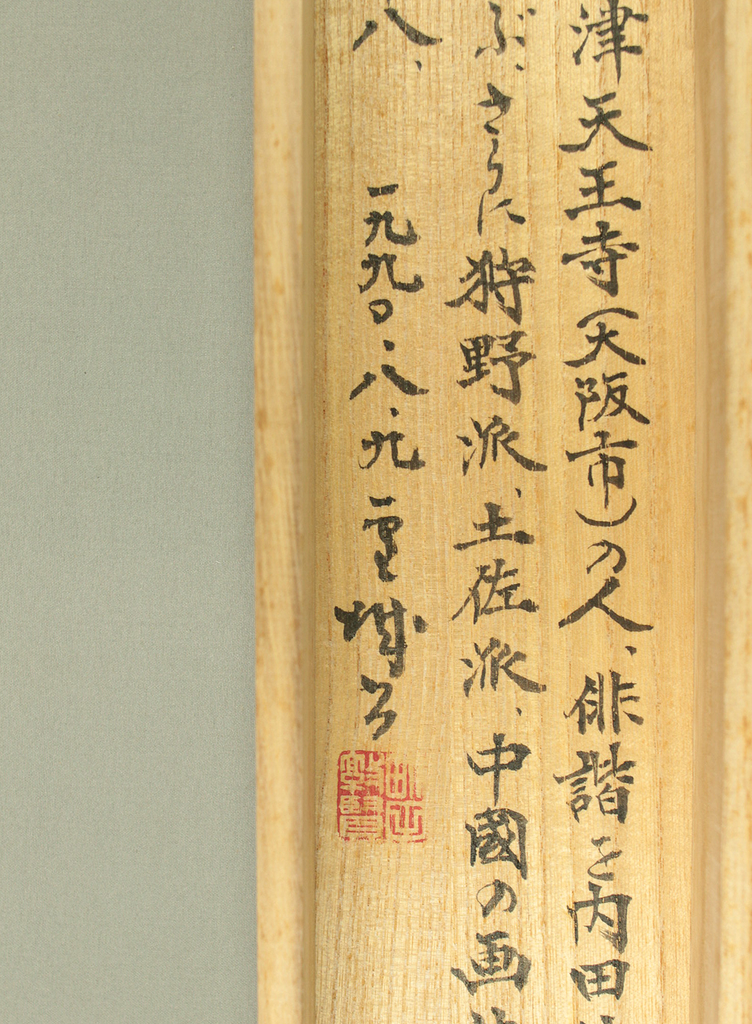 津天王寺(大阪市)の人、俳諧を内田
ぶ、さらに狩野派、土佐派、中國の画
八、 一九九〇・八・九 重